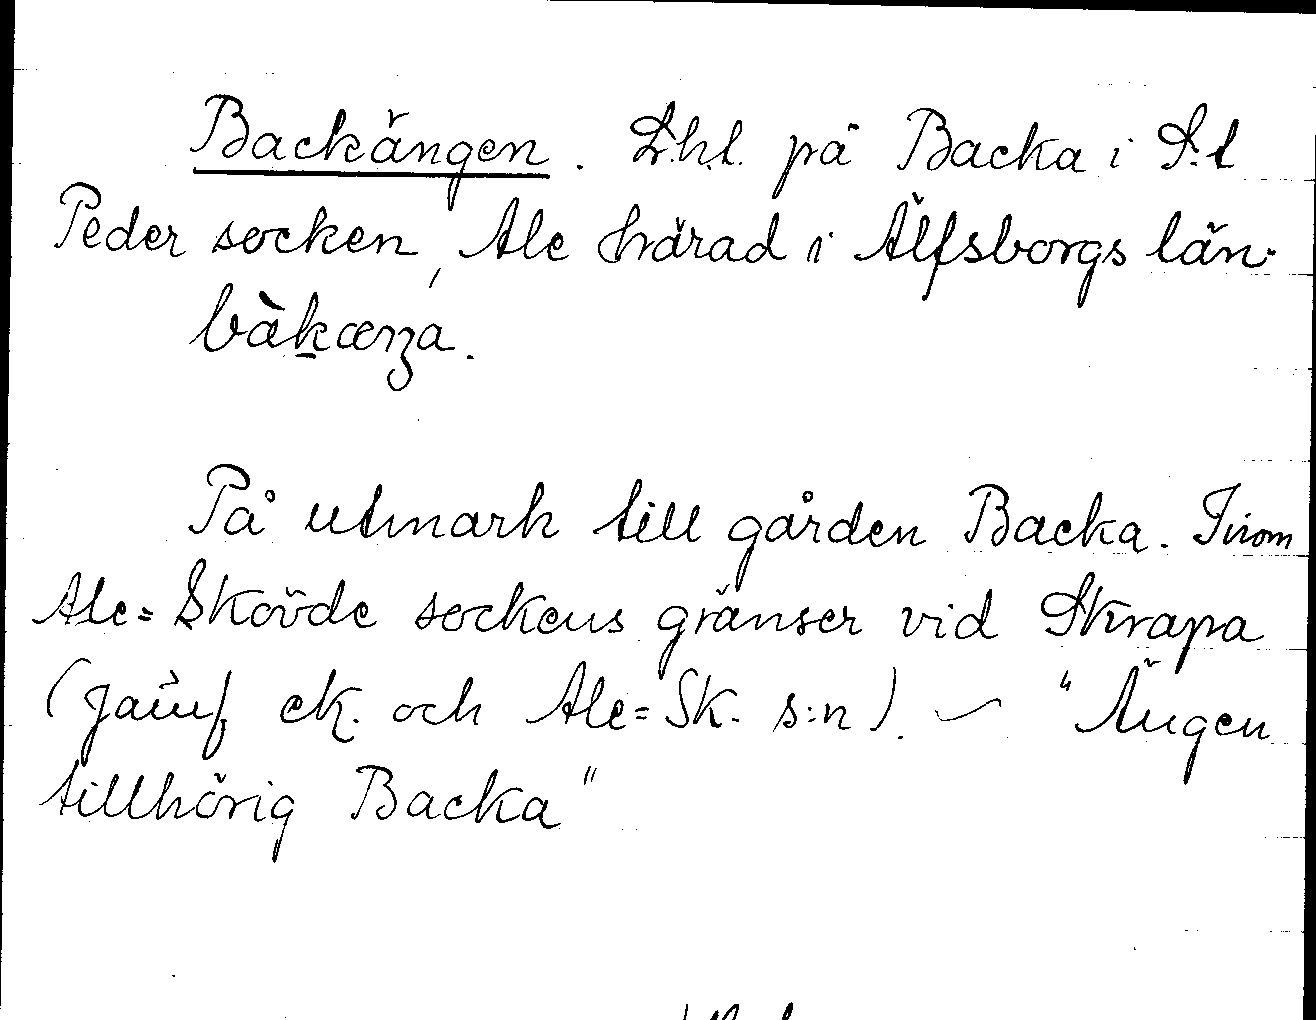 Backängen. Lht. på Backa i S:t
Peder socken, Ale härad i Älfsborgs län.
bàkænga.
På utmark till gården Backa. Inom
Ale=Skövde sockens gränser vid Skrapa
(jämf ek. och Ale=Sk. s:n). — "Ängen
tillhörig Backa"